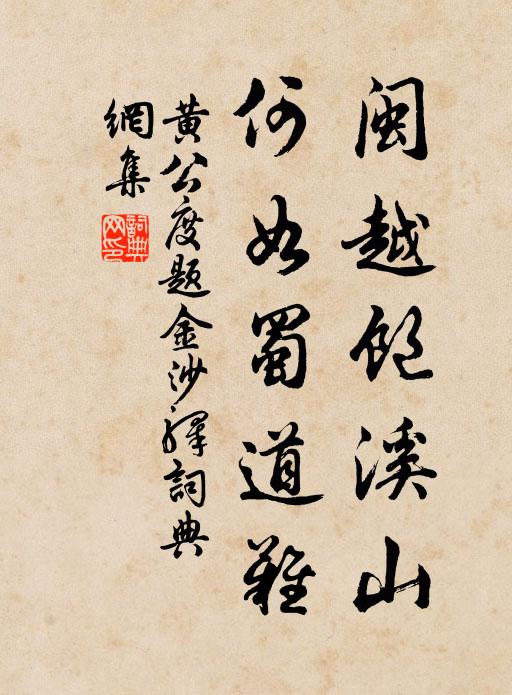 閩越飽溪山
何如蜀道難
黃公度題金沙驛詞典
網集
詞典
网印